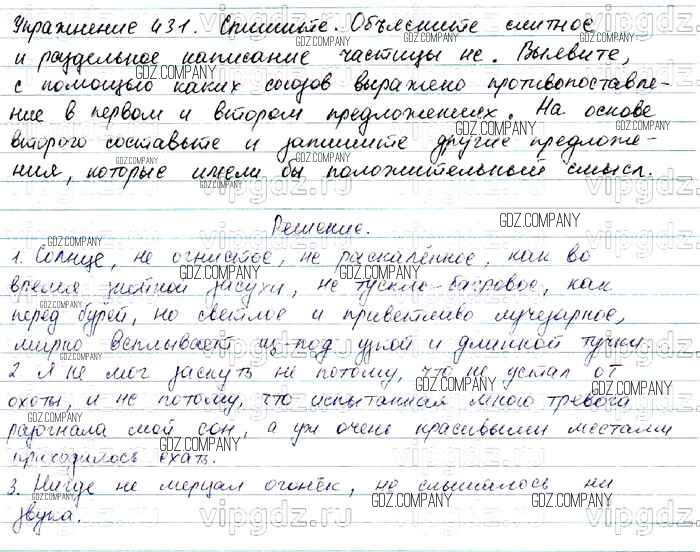 Упражнение 431. Спишите. Объясните слитное
и раздельное написание частицы не. Выявите,
с помощью каких союзов выражено противопоставле-
ние в первом и втором предложениях. На основе
второго составьте и запишите другие предложе-
ния, которые имели бы положительный смысл.
Решение.
1. Солнце, не огнистое, не раскалённое, как во
время знойной засухи, не тускло-багровое, как
перед бурей, но светлое и приветливо лучезарное,
мирно всплывает из-под узкой и длинной тучки
2 Я не мог заснуть не потому, что не устал от
охоты, и не потому, что испытанная мною тревога
разогнала мой сон, а уж очень красивыми местами
приходилось ехать.
3. Нигде не мерцал огонёк, не слышалось ни
звука.
GDZ.COMPANY
vipgdz.ru